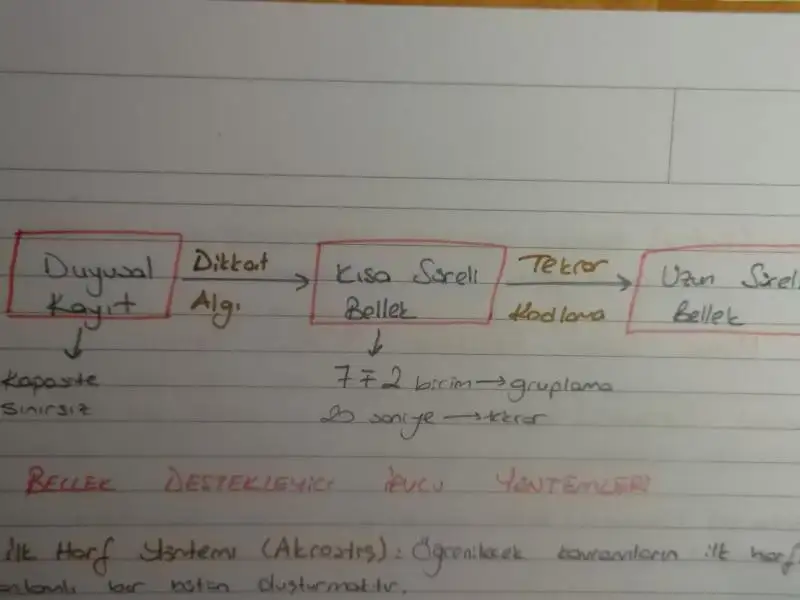 Duyusal Dikkat Kısa Süreli Tekrar Uzun Süreli
Kayıt Algı Bellek Kodlama Bellek
Kapasite 7 ∓ 2 birim → gruplama
sınırsız 20 saniye → tekrar
BELLEK DESTEKLEYİCİ İPUCU YÖNTEMLERİ
İlk Harf Yöntemi (Akrostiş): Öğrenilecek kavramların ilk harf
anlamlı bir bütün oluşturmaktır.